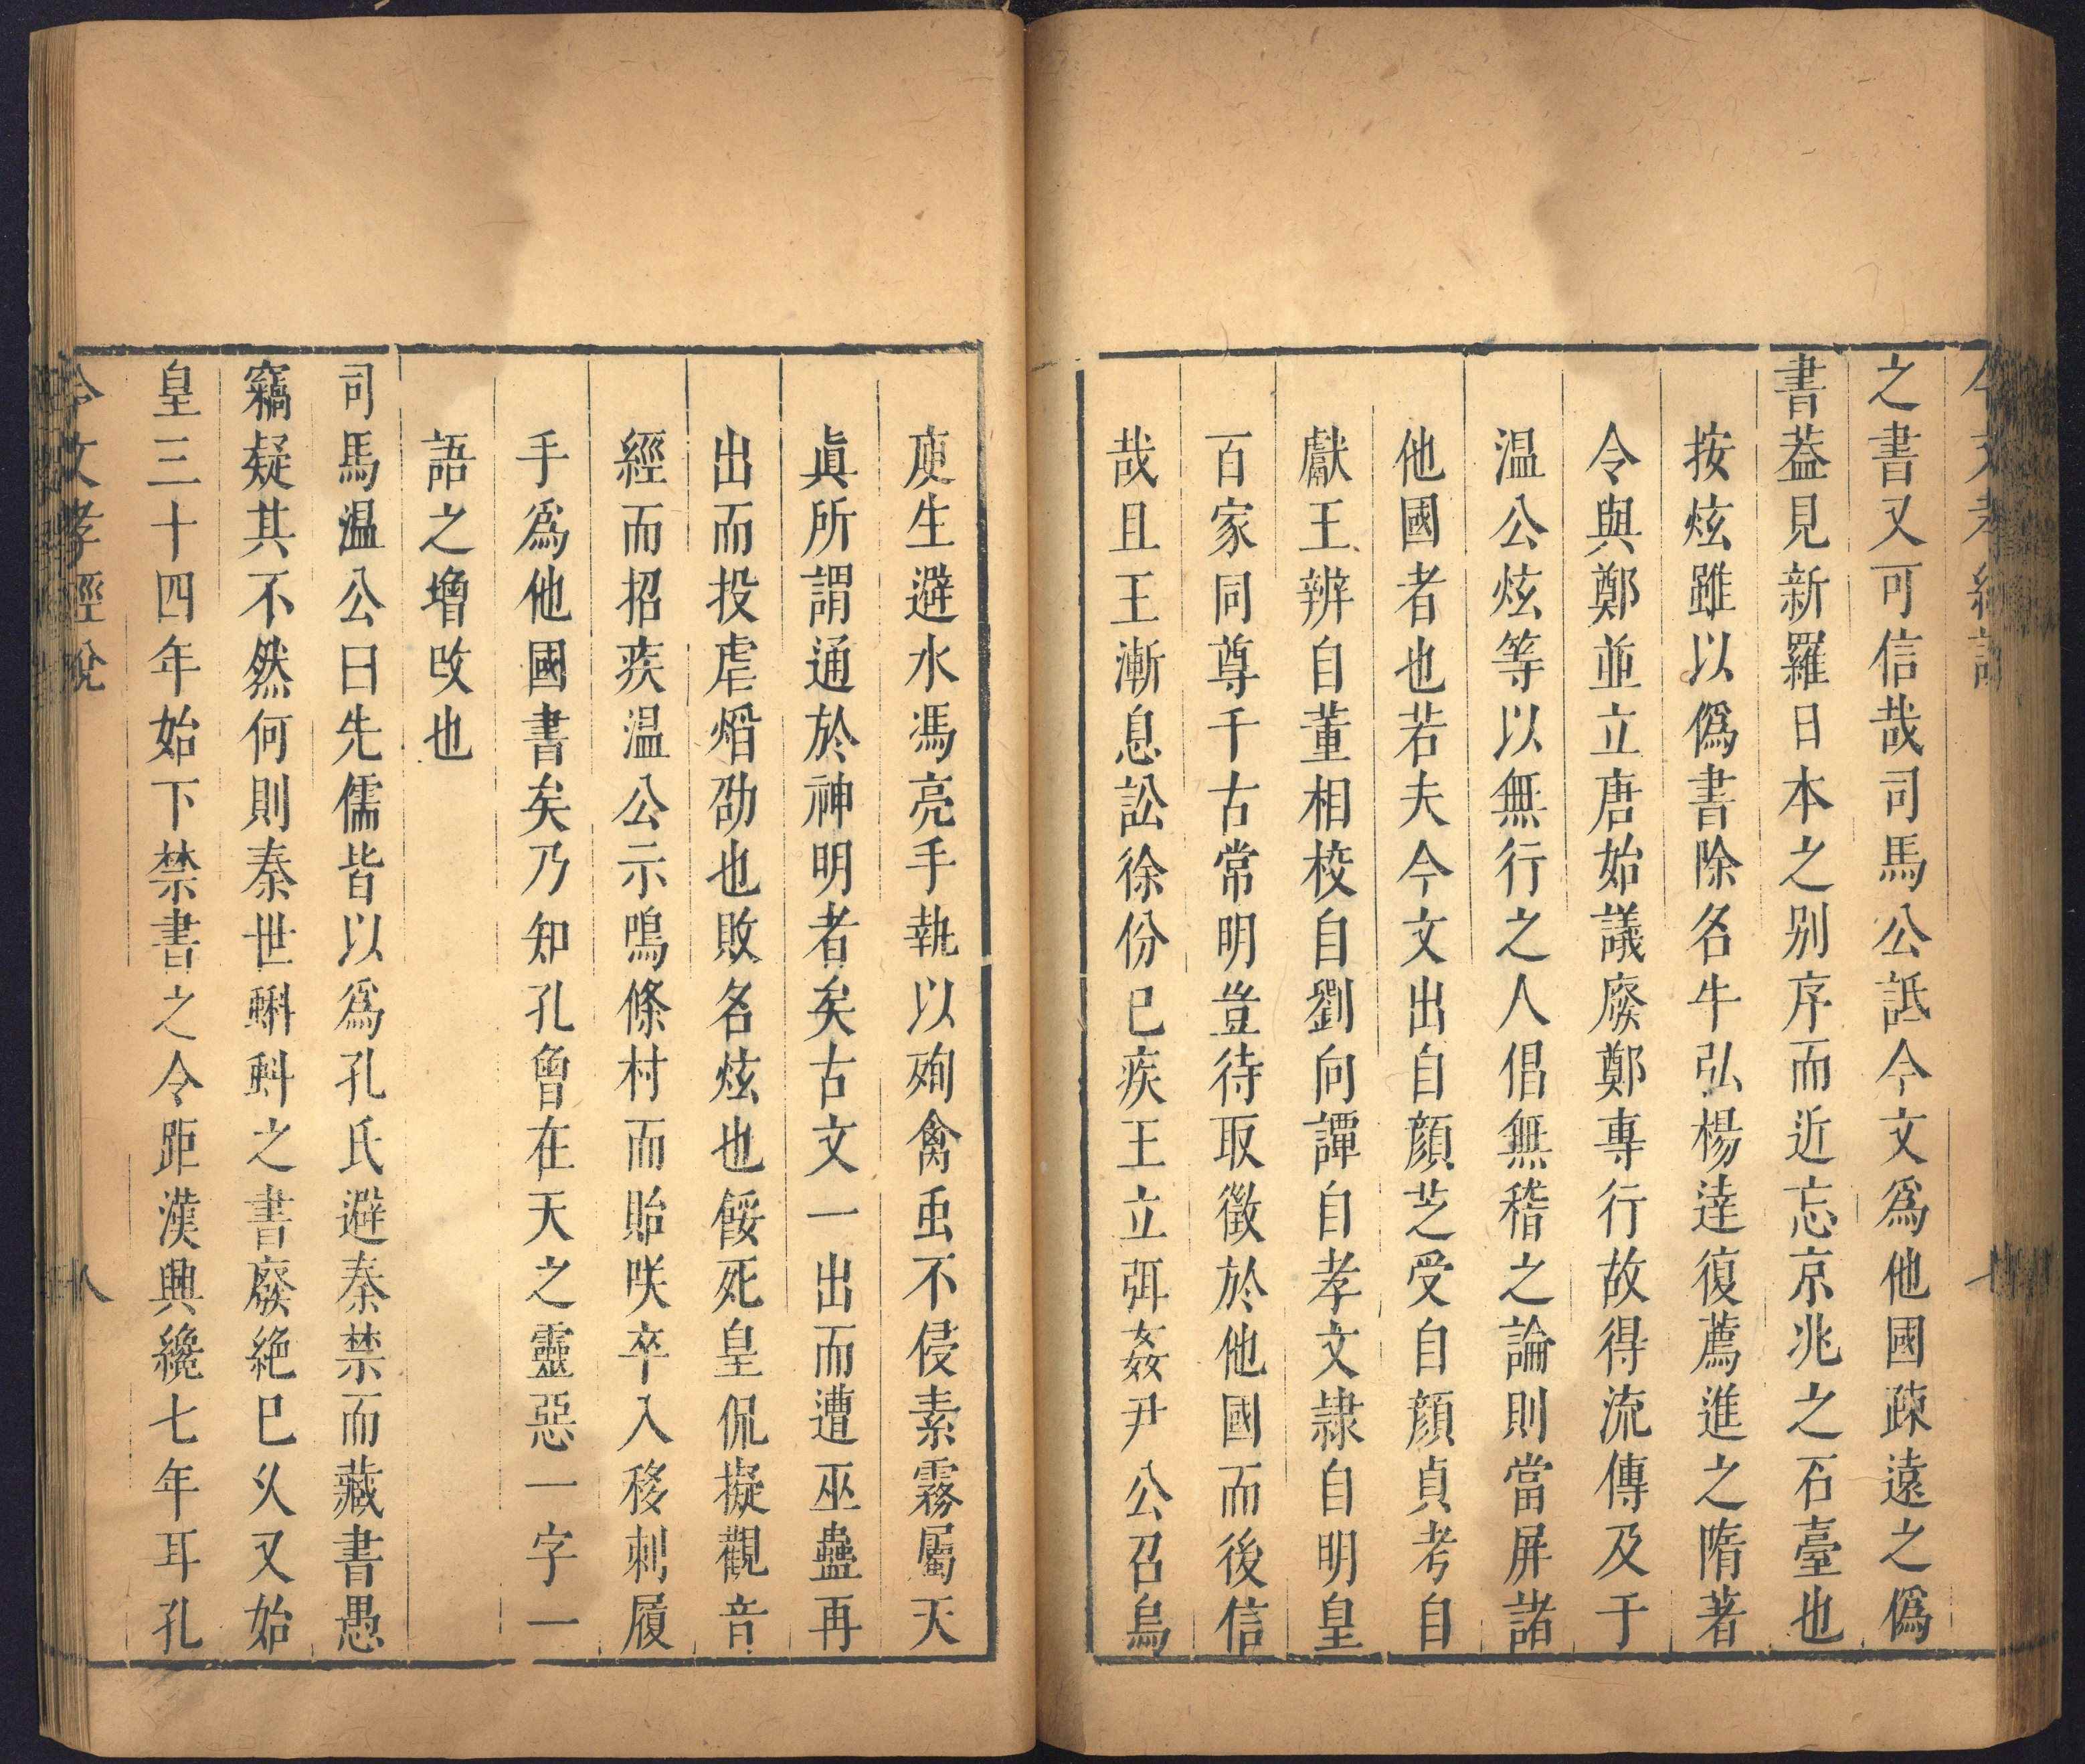 今文孝經說
七
之書又可信哉司馬公詆今文爲他國疎遠之僞
書葢見新羅日本之别序而近忘京兆之石臺也
按炫雖以僞書除名牛弘楊逹復薦進之隋著
令與鄭並立唐始議廢鄭專行故得流傳及于
温公炫等以無行之人倡無稽之論則當屏諸
他國者也若夫今文出自顔芝受自顔貞考自
獻王辨自董相校自劉向譚自孝文隷自明皇
百家同尊千古常明豈待取徵於他國而後信
哉且王漸息訟徐份已疾王立弭姦尹公召烏
庾生避水馮亮手執以殉禽䖝不侵素霧屬天
眞所謂通於神明者矣古文一出而遭巫蠱再
出而投虐熖劭也敗名炫也餒死皇侃擬觀音
經而招疾温公示鳴條村而貽咲卒入移刺履
手爲他國書矣乃知孔曾在天之靈惡一字一
語之增改也
司馬温公曰先儒皆以爲孔氏避秦禁而藏書愚
竊疑其不然何則秦世蝌蚪之書廢絶已乆又始
皇三十四年始下禁書之令距漢興纔七年耳孔
今文孝經說
八